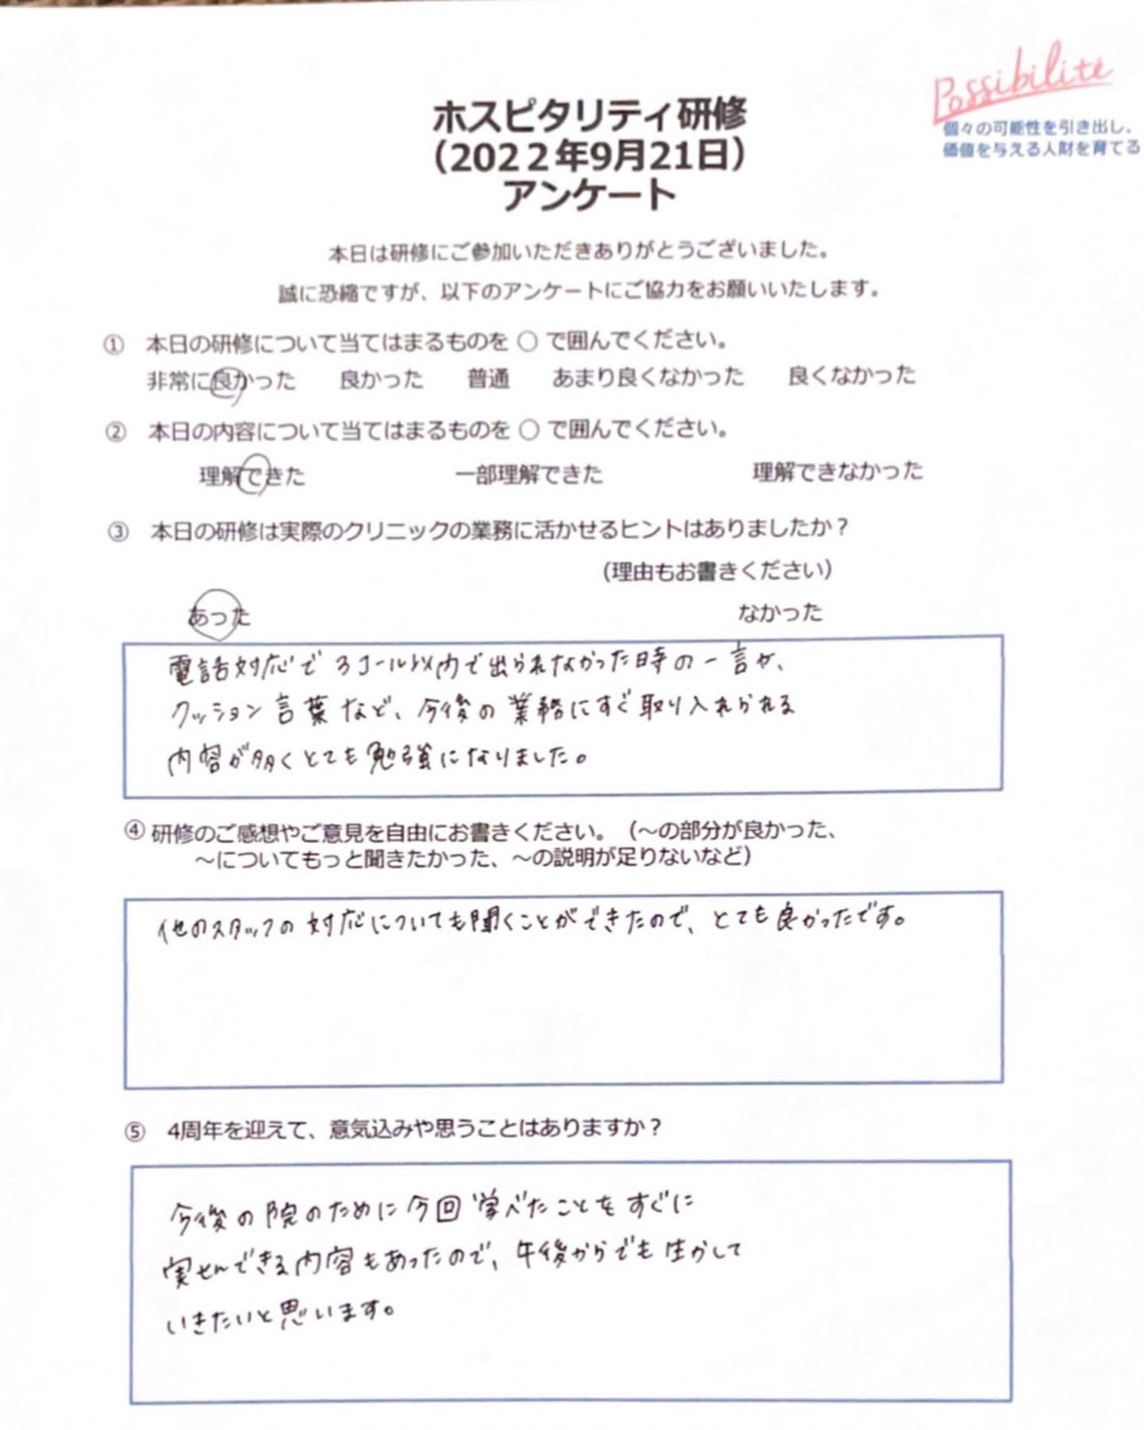 Possibilité
個々の可能性を引き出し、
価値を与える人財を育てる
ホスピタリティ研修
（2022年9月21日）
アンケート
本日は研修にご参加いただきありがとうございました。
誠に恐縮ですが、以下のアンケートにご協力をお願いいたします。
① 本日の研修について当てはまるものを ○ で囲んでください。
非常に良かった 良かった 普通 あまり良くなかった 良くなかった
② 本日の内容について当てはまるものを ○ で囲んでください。
理解できた 一部理解できた 理解できなかった
③ 本日の研修は実際のクリニックの業務に活かせるヒントはありましたか？
（理由もお書きください）
あった なかった
電話対応で3コール以内で出られなかった時の一言や、
クッション言葉など、今後の業務にすぐ取り入れられる
内容が多くとても勉強になりました。
④ 研修のご感想やご意見を自由にお書きください。（～の部分が良かった、
～についてもっと聞きたかった、～の説明が足りないなど）
他のスタッフの対応についても聞くことができたので、とても良かったです。
⑤ 4周年を迎えて、意気込みや思うことはありますか？
今後の院のために今回学べたことをすぐに
実せんできる内容もあったので、午後からでも生かして
いきたいと思います。